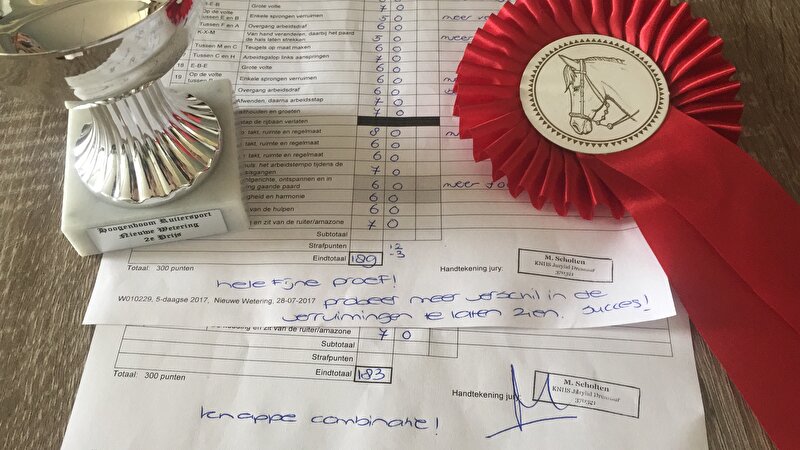 E-B-E Grote volte 7 0
Op de volte Tussen E en B Enkele sprongen verruimen 5 0 meer
Tussen F en A Overgang arbeidsdraf 6 0
K-X-M Van hand veranderen, daarbij het paard de hals laten strekken. 5 0 meer
Tussen M en C Teugels op maat maken 6 0
Tussen C en H Arbeidsgalop links aanspringen 7 0
18 E-B-E Grote volte 6 0
19 Op de volte tussen E Enkele sprongen verruimen 6 0
Overgang arbeidsdraf 6 0
Afwenden, daarna arbeidsstap 7 0
halthouden en groeten 7 0
stap de rijbaan verlaten
: takt, ruimte en regelmaat 8 0
, takt, ruimte en regelmaat 6 0
takt, ruimte en regelmaat 6 0
het arbeidstempo tijdens de
gangen 7 0
gerichte, ontspannen en in
ing gaande paard 6 0 meer
gheid en harmonie 6 0
van de hulpen 6 0
en zit van de ruiter/amazone 7 0
Subtotaal
Strafpunten 12 -3
Totaal: 300 punten Eindtotaal 189 Handtekening jury:
M. Scholten
KNHS Jurylid Dressuur
370321
hele fijne proef!
W010229, 5-daagse 2017, Nieuwe Wetering, 28-07-2017 probeer meer verschil in de
verruimingen te laten zien. Succes!
en zit van de ruiter/amazone 7 0
Subtotaal
Strafpunten
Totaal: 300 punten Eindtotaal 183 Handtekening jury:
M. Scholten
KNHS Jurylid Dressuur
370321
knappe combinatie!
Hoogenboom Ruitersport
Nieuwe Wetering
2e Prijs